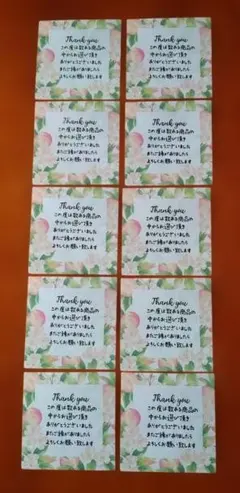 Thank you
この度は数ある商品の
中からお選び頂き
ありがとうございました
またご縁がありましたら
よろしくお願い致します
Thank you
この度は数ある商品の
中からお選び頂き
ありがとうございました
またご縁がありましたら
よろしくお願い致します
Thank you
この度は数ある商品の
中からお選び頂き
ありがとうございました
またご縁がありましたら
よろしくお願い致します
Thank you
この度は数ある商品の
中からお選び頂き
ありがとうございました
またご縁がありましたら
よろしくお願い致します
Thank you
この度は数ある商品の
中からお選び頂き
ありがとうございました
またご縁がありましたら
よろしくお願い致します
Thank you
この度は数ある商品の
中からお選び頂き
ありがとうございました
またご縁がありましたら
よろしくお願い致します
Thank you
この度は数ある商品の
中からお選び頂き
ありがとうございました
またご縁がありましたら
よろしくお願い致します
Thank you
この度は数ある商品の
中からお選び頂き
ありがとうございました
またご縁がありましたら
よろしくお願い致します
Thank you
この度は数ある商品の
中からお選び頂き
ありがとうございました
またご縁がありましたら
よろしくお願い致します
Thank you
この度は数ある商品の
中からお選び頂き
ありがとうございました
またご縁がありましたら
よろしくお願い致します